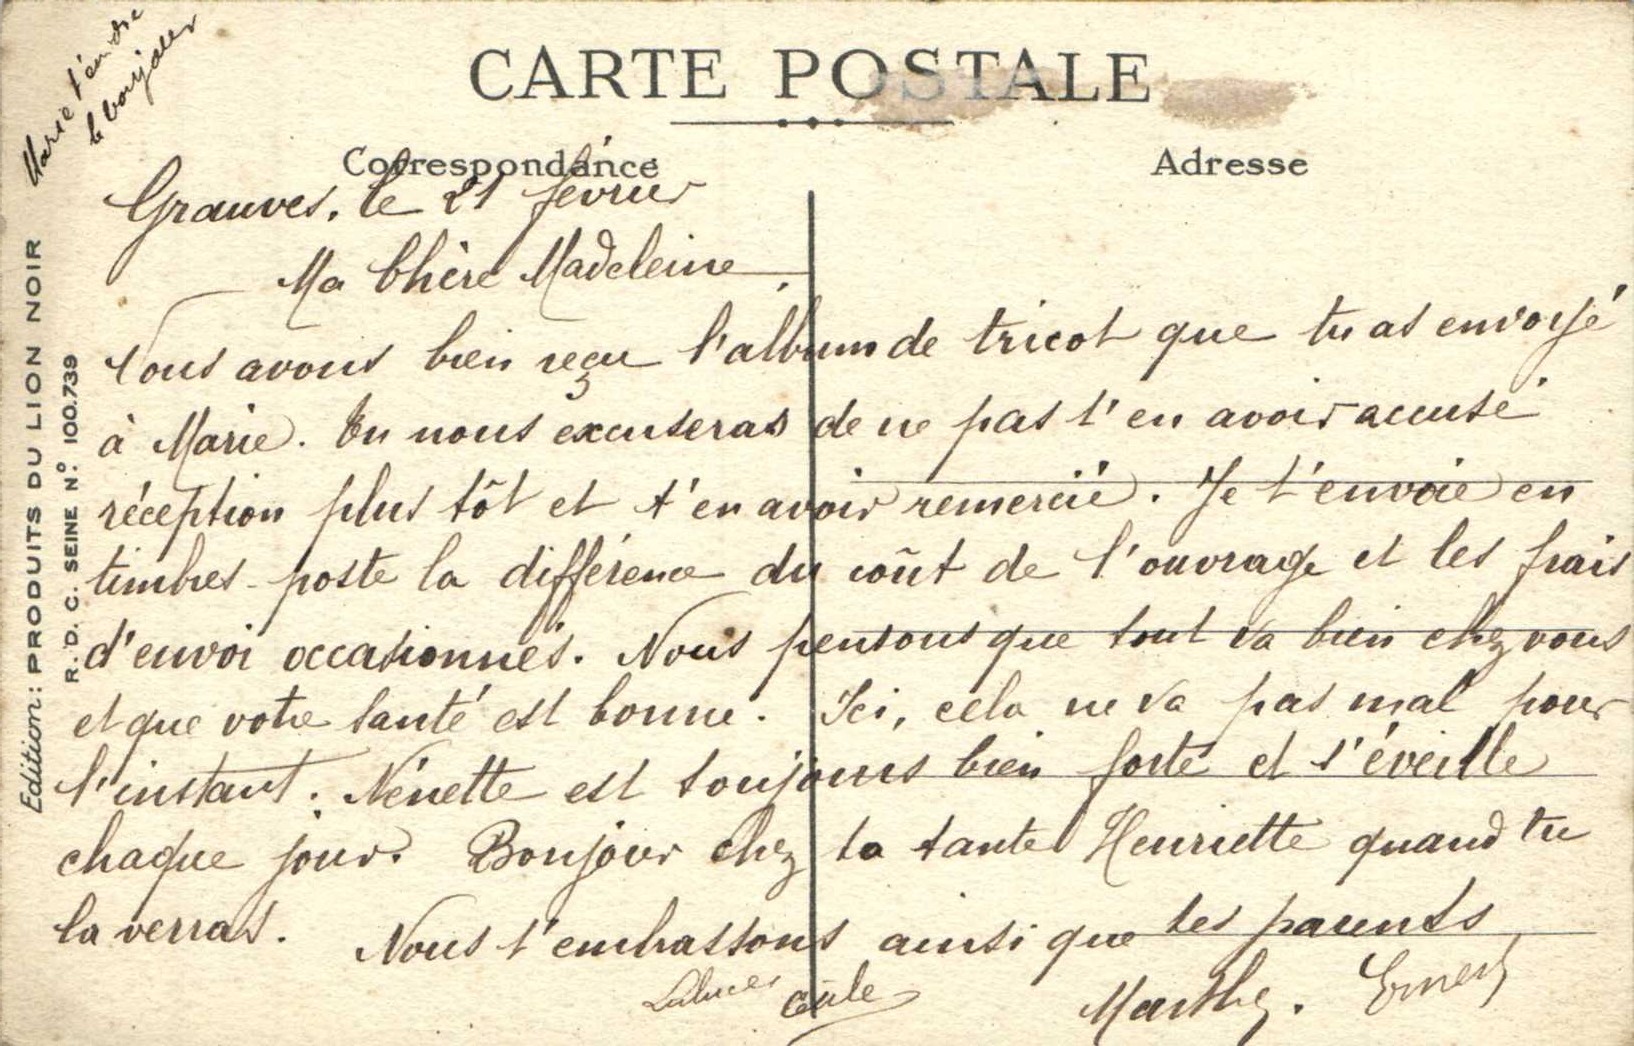 CARTE POSTALE
Correspondance
Adresse
Marie t'en die
le bonjour
Edition: PRODUITS DU LION NOIR
R. D. C. SEINE N° 100.739
Grauves, le 21 février
Ma Chère Madeleine
Nous avons bien reçu l'album de tricot que tu as envoyé
à Marie. Tu nous excuseras de ne pas t'en avoir accusé
réception plus tôt et t'en avoir remercié. Je t'envoie en
timbres-poste la différence du coût de l'ouvrage et les frais
d'envoi occasionnés. Nous pensons que tout va bien chez vous
et que votre santé est bonne. Ici, cela ne va pas mal pour
l'instant. Nénette est toujours bien forte et s'éveille
chaque jour. Bonjour chez ta tante Henriette quand tu
la verras.
Nous t'embrassons ainsi que tes parents
Marthe. Ernest